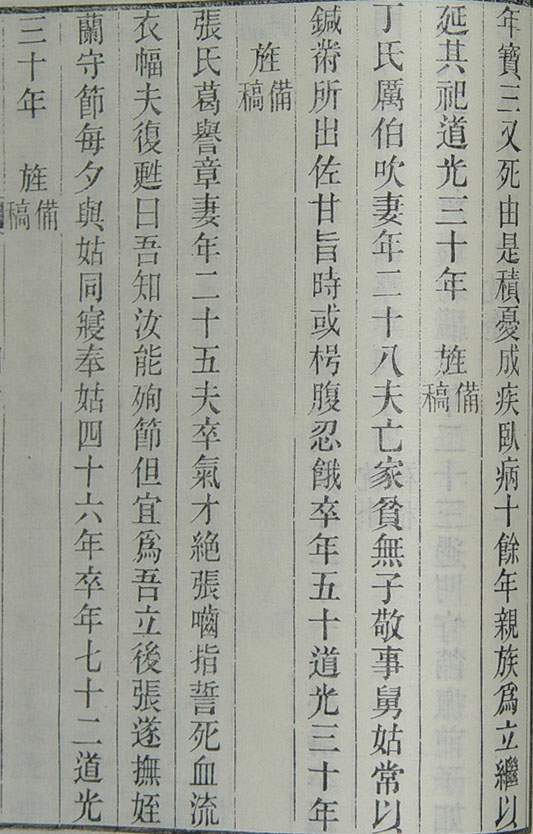 年寶三又死由是積憂成疾臥病十餘年親族為立繼以
延其祀道光三十年 旌備稿
丁氏厲伯吹妻年二十八夫亡家貧無子敬事舅姑常以
鍼黹所出佐甘旨時或枵腹忍餓卒年五十道光三十年
旌備稿
張氏葛譽章妻年二十五夫卒氣才絕張嚙指誓死血流
衣幅夫復甦曰吾知汝能殉節但宜為吾立後張遂撫姪
蘭守節每夕與姑同寢奉姑四十六年卒年七十二道光
三十年 旌備稿